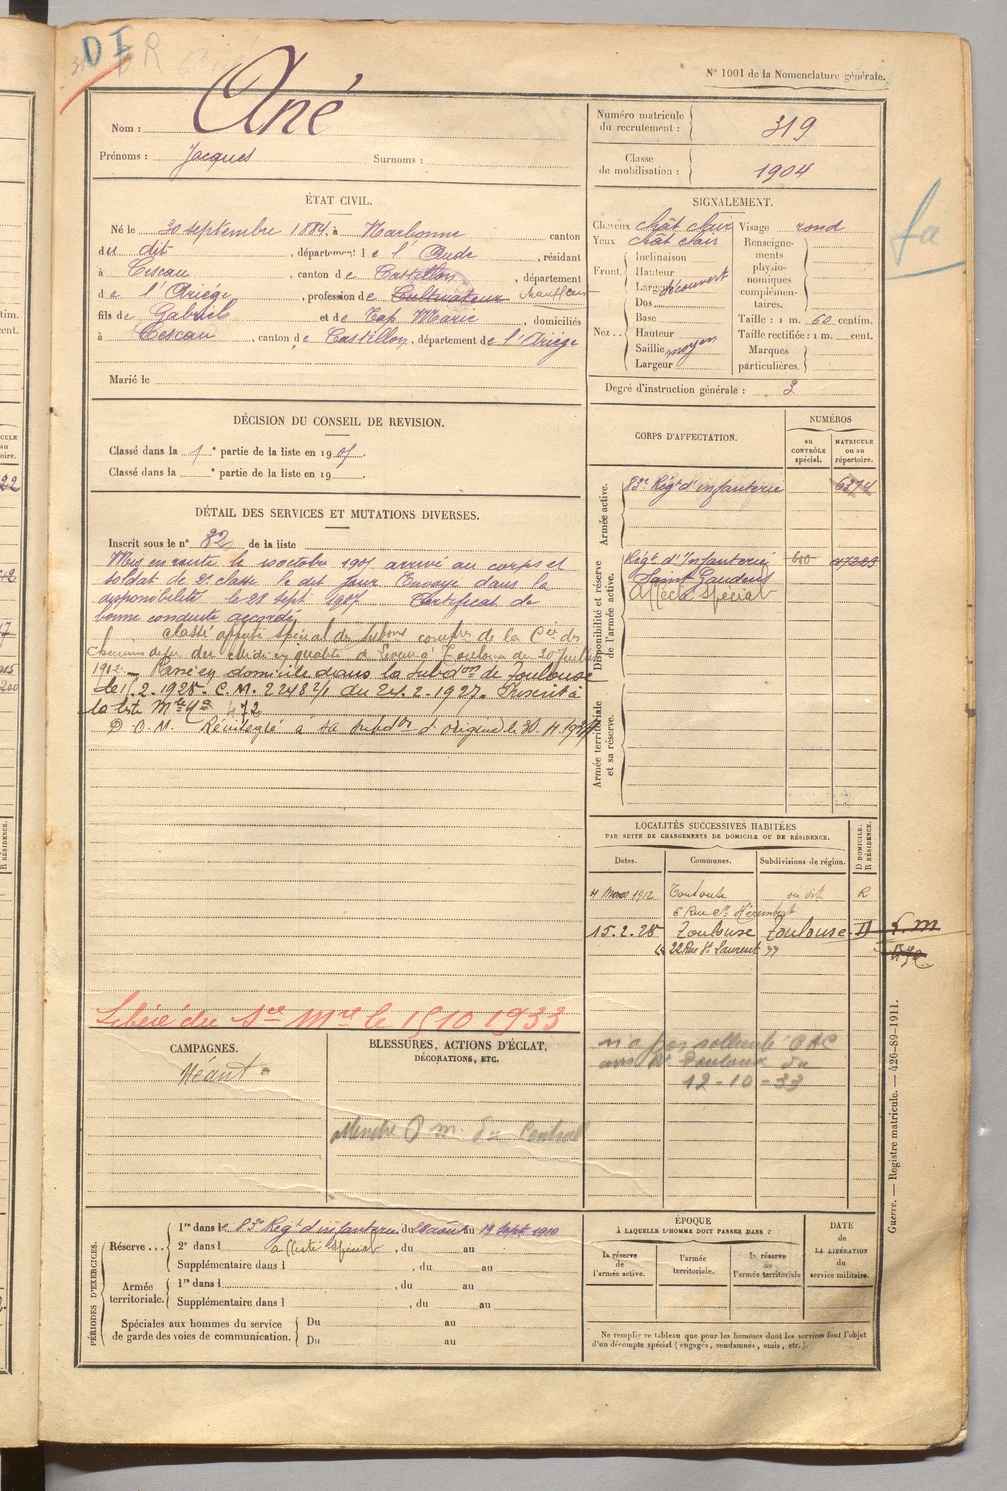 DI
R
N° 1001 de la Nomenclature générale.
Nom : Ané
Prénoms : Jacques Surnoms :
Numéro matricule du recrutement : 319
Classe de mobilisation : 1904
ÉTAT CIVIL.
Né le 30 septembre 1884, à Narbonne canton
du dit, département de l'Aude, résidant
à Cescau, canton de Castillon, département
de l'Ariège, profession de Cultivateur chauffeur
fils de Gabriel et de Cap Marie, domiciliés
à Cescau, canton de Castillon, département de l'Ariège
Marié le
SIGNALEMENT.
Cheveux chât clair
Yeux chât clair
Front. Inclinaison
Hauteur
Largeur découvert
Nez.. Dos
Base
Hauteur
Saillie moyen
Largeur
Visage rond
Renseignements physionomiques complémentaires.
Taille : 1 m. 60 centim.
Taille rectifiée : 1 m. cent.
Marques particulières.
Degré d'instruction générale : 3
fa
DÉCISION DU CONSEIL DE REVISION.
Classé dans la 1e partie de la liste en 1905.
Classé dans la e partie de la liste en 19
DÉTAIL DES SERVICES ET MUTATIONS DIVERSES.
Inscrit sous le n° 82 de la liste
Mis en route le 10 octobre 1905 arrivé au corps et
soldat de 2e classe le dit jour Envoyé dans la
disponibilité le 28 sept 1907 Certificat de
bonne conduite accordé
Classé affecté spécial des subdons comptes de la Cie des
Chemins de fer du Midi en qualité de à Toulouse du 30
1912 - Passé en domicile dans la subdon de Toulouse
le 15.2.1928 - C.M. 2248 2/1 du 24.2.1927. Inscrit à
la liste Mle 4a 472
D.O.M. Réintégré à sa subdon d'origine le 30.4.
Libéré du Sce Mre le 15 10 1933
CORPS D'AFFECTATION.
NUMÉROS
au CONTRÔLE spécial.
MATRICULE ou au répertoire.
Armée active.
83e Régt d'infanterie 6374
Disponibilité et réserve de l'armée active.
Régt d'Infanterie
Saint Gaudens
Affecté Spécial
Armée territoriale et sa réserve.
LOCALITÉS SUCCESSIVES HABITÉES
PAR SUITE DE CHANGEMENTS DE DOMICILE OU DE RÉSIDENCE.
Dates. Communes. Subdivisions de région. D DOMICILE. R RÉSIDENCE.
4 Mars 1912 Toulouse ou dit R
6 Rue
15.2.28 Toulouse Toulouse D
22 Rue St Laurent
n'a pas
12-10-33
CAMPAGNES.
Néant
BLESSURES, ACTIONS D'ÉCLAT,
DÉCORATIONS, ETC.
PÉRIODES D'EXERCICES.
Réserve... 1re dans le 83e Régt d'infanterie, du au 19 sept 1910
2e dans l affecté spécial, du au
Supplémentaire dans l , du au
Armée territoriale. 1re dans l , du au
Supplémentaire dans l , du au
Spéciales aux hommes du service de garde des voies de communication. Du au
Du au
ÉPOQUE
À LAQUELLE L'HOMME DOIT PASSER DANS :
la réserve de l'armée active.
l'armée territoriale.
la réserve de l'armée territoriale
DATE de LA LIBÉRATION du service militaire.
Ne remplir ce tableau que pour les hommes dont les services font l'objet
d'un décompte spécial (engagés, condamnés, omis, etc.).
Guerre. — Registre matricule. — 426-89-1911.